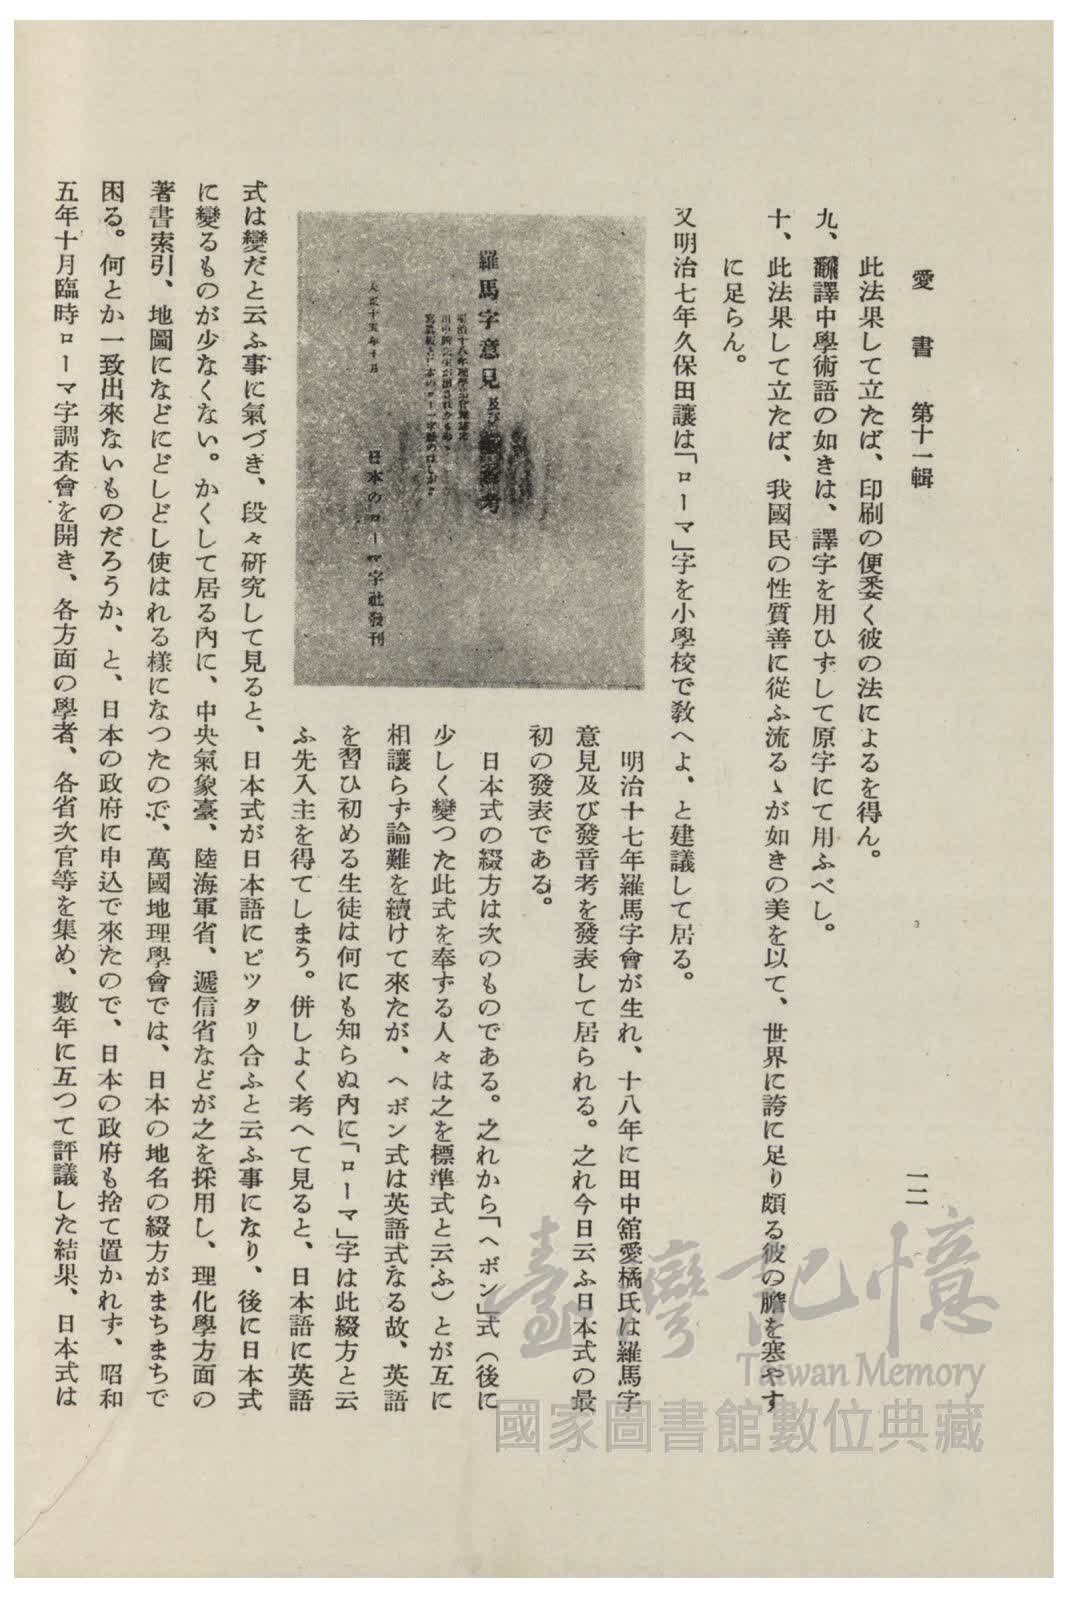 愛書 第十一輯
一二
此法果して立たば、印刷の便悉く彼の法によるを得ん。
九、飜譯中學術語の如きは、譯字を用ひずして原字にて用ふべし。
十、此法果して立たば、我國民の性質善に從ふ流るゝが如きの美を以て、世界に誇に足り頗る彼の膽を塞やす
に足らん。
又明治七年久保田讓は「ローマ」字を小學校で敎へよ、と建議して居る。
羅馬字意見及び發音考
大正十五年十月
日本のローマ字社發刊
明治十七年羅馬字會が生れ、十八年に田中舘愛橘氏は羅馬字
意見及び發音考を發表して居られる。之れ今日云ふ日本式の最
初の發表である。
日本式の綴方は次のものである。之れから「ヘボン」式（後に
少しく變つた此式を奉ずる人々は之を標準式と云ふ）とが互に
相讓らず論難を續けて來たが、ヘボン式は英語式なる故、英語
を習ひ初める生徒は何にも知らぬ內に「ローマ」字は此綴方と云
ふ先入主を得てしまう。併しよく考へて見ると、日本語に英語
式は變だと云ふ事に氣づき、段々研究して見ると、日本式が日本語にピツタリ合ふと云ふ事になり、後に日本式
に變るものが少なくない。かくして居る內に、中央氣象臺、陸海軍省、遞信省などが之を採用し、理化學方面の
著書索引、地圖になどにどしどし使はれる樣になつたので、萬國地理學會では、日本の地名の綴方がまちまちで
困る。何とか一致出來ないものだろうか、と、日本の政府に申込で來たので、日本の政府も捨て置かれず、昭和
五年十月臨時ローマ字調査會を開き、各方面の學者、各省次官等を集め、數年に亙つて評議した結果、日本式は
臺灣記憶
Taiwan Memory
國家圖書館數位典藏